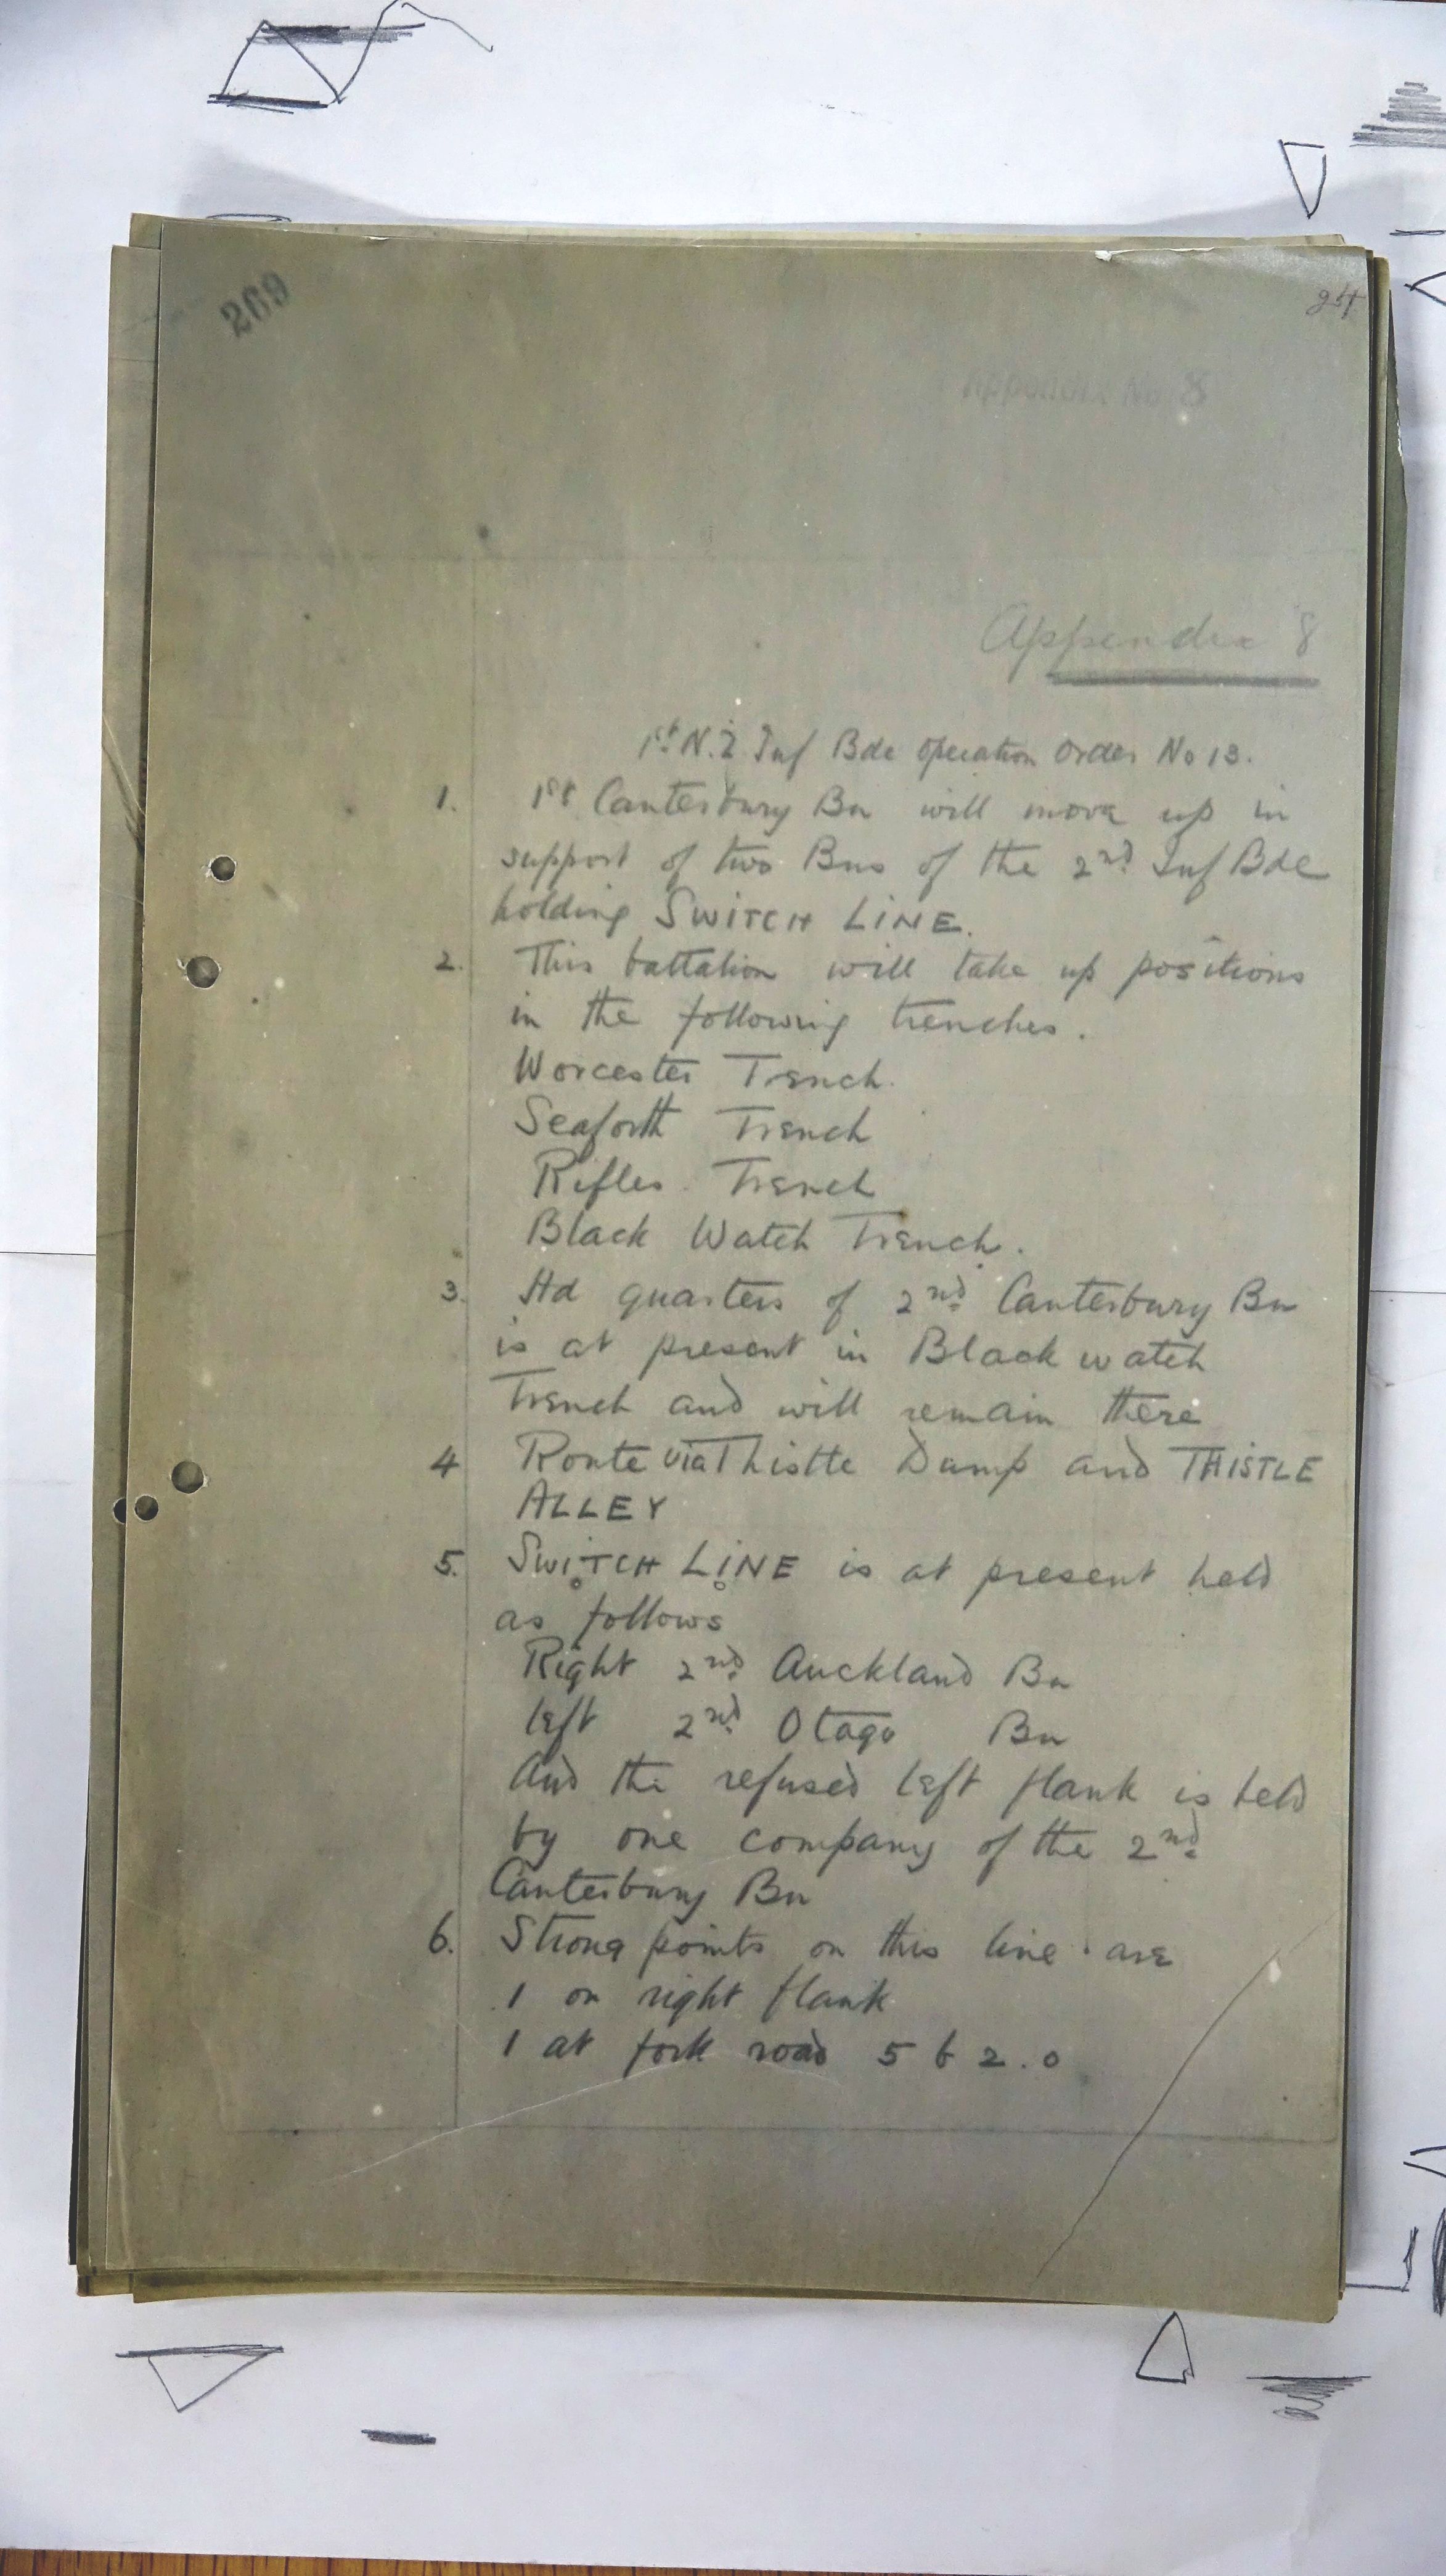 269
Appendix No 8
Appendix 8
1st N.Z Inf Bde Operation Order No 13.
1. 1st Canterbury Bn will move up in
support of two Bns of the 2nd Inf Bde
holding SWITCH LINE.
2. This battalion will take up positions
in the following trenches.
Worcester Trench.
Seaforth Trench
Rifles Trench
Black Watch Trench.
3. Hd quarters of 2nd Canterbury Bn
is at present in Black watch
Trench and will remain there
4 Route via Thistle Dump and THISTLE
ALLEY
5. SWITCH LINE is at present held
as follows
Right 2nd Auckland Bn
left 2nd Otago Bn
And the refused left flank is held
by one company of the 2nd
Canterbury Bn
6. Strong points on this line are
1 on right flank
1 at fork road 5 b 2.0